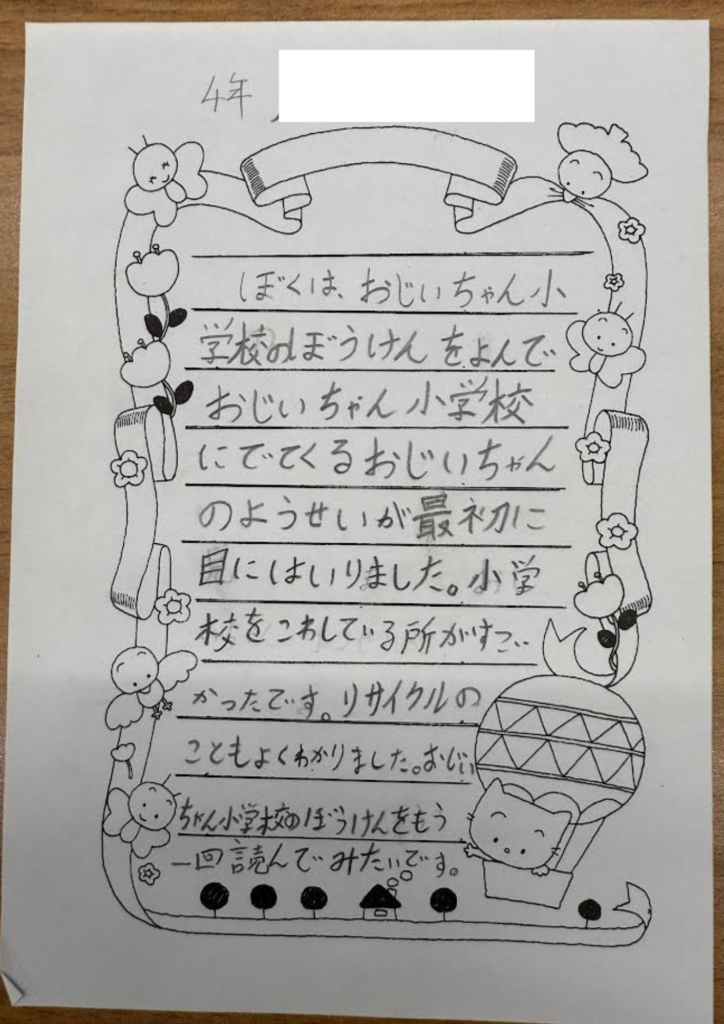 4年
ぼくは、おじいちゃん小
学校のぼうけんをよんで
おじいちゃん小学校
にでてくるおじいちゃん
のようせいが最初に
目にはいりました。小学
校をこわしている所がすご
かったです。リサイクルの
こともよくわかりました。おじい
ちゃん小学校のぼうけんをもう
一回読んでみたいです。